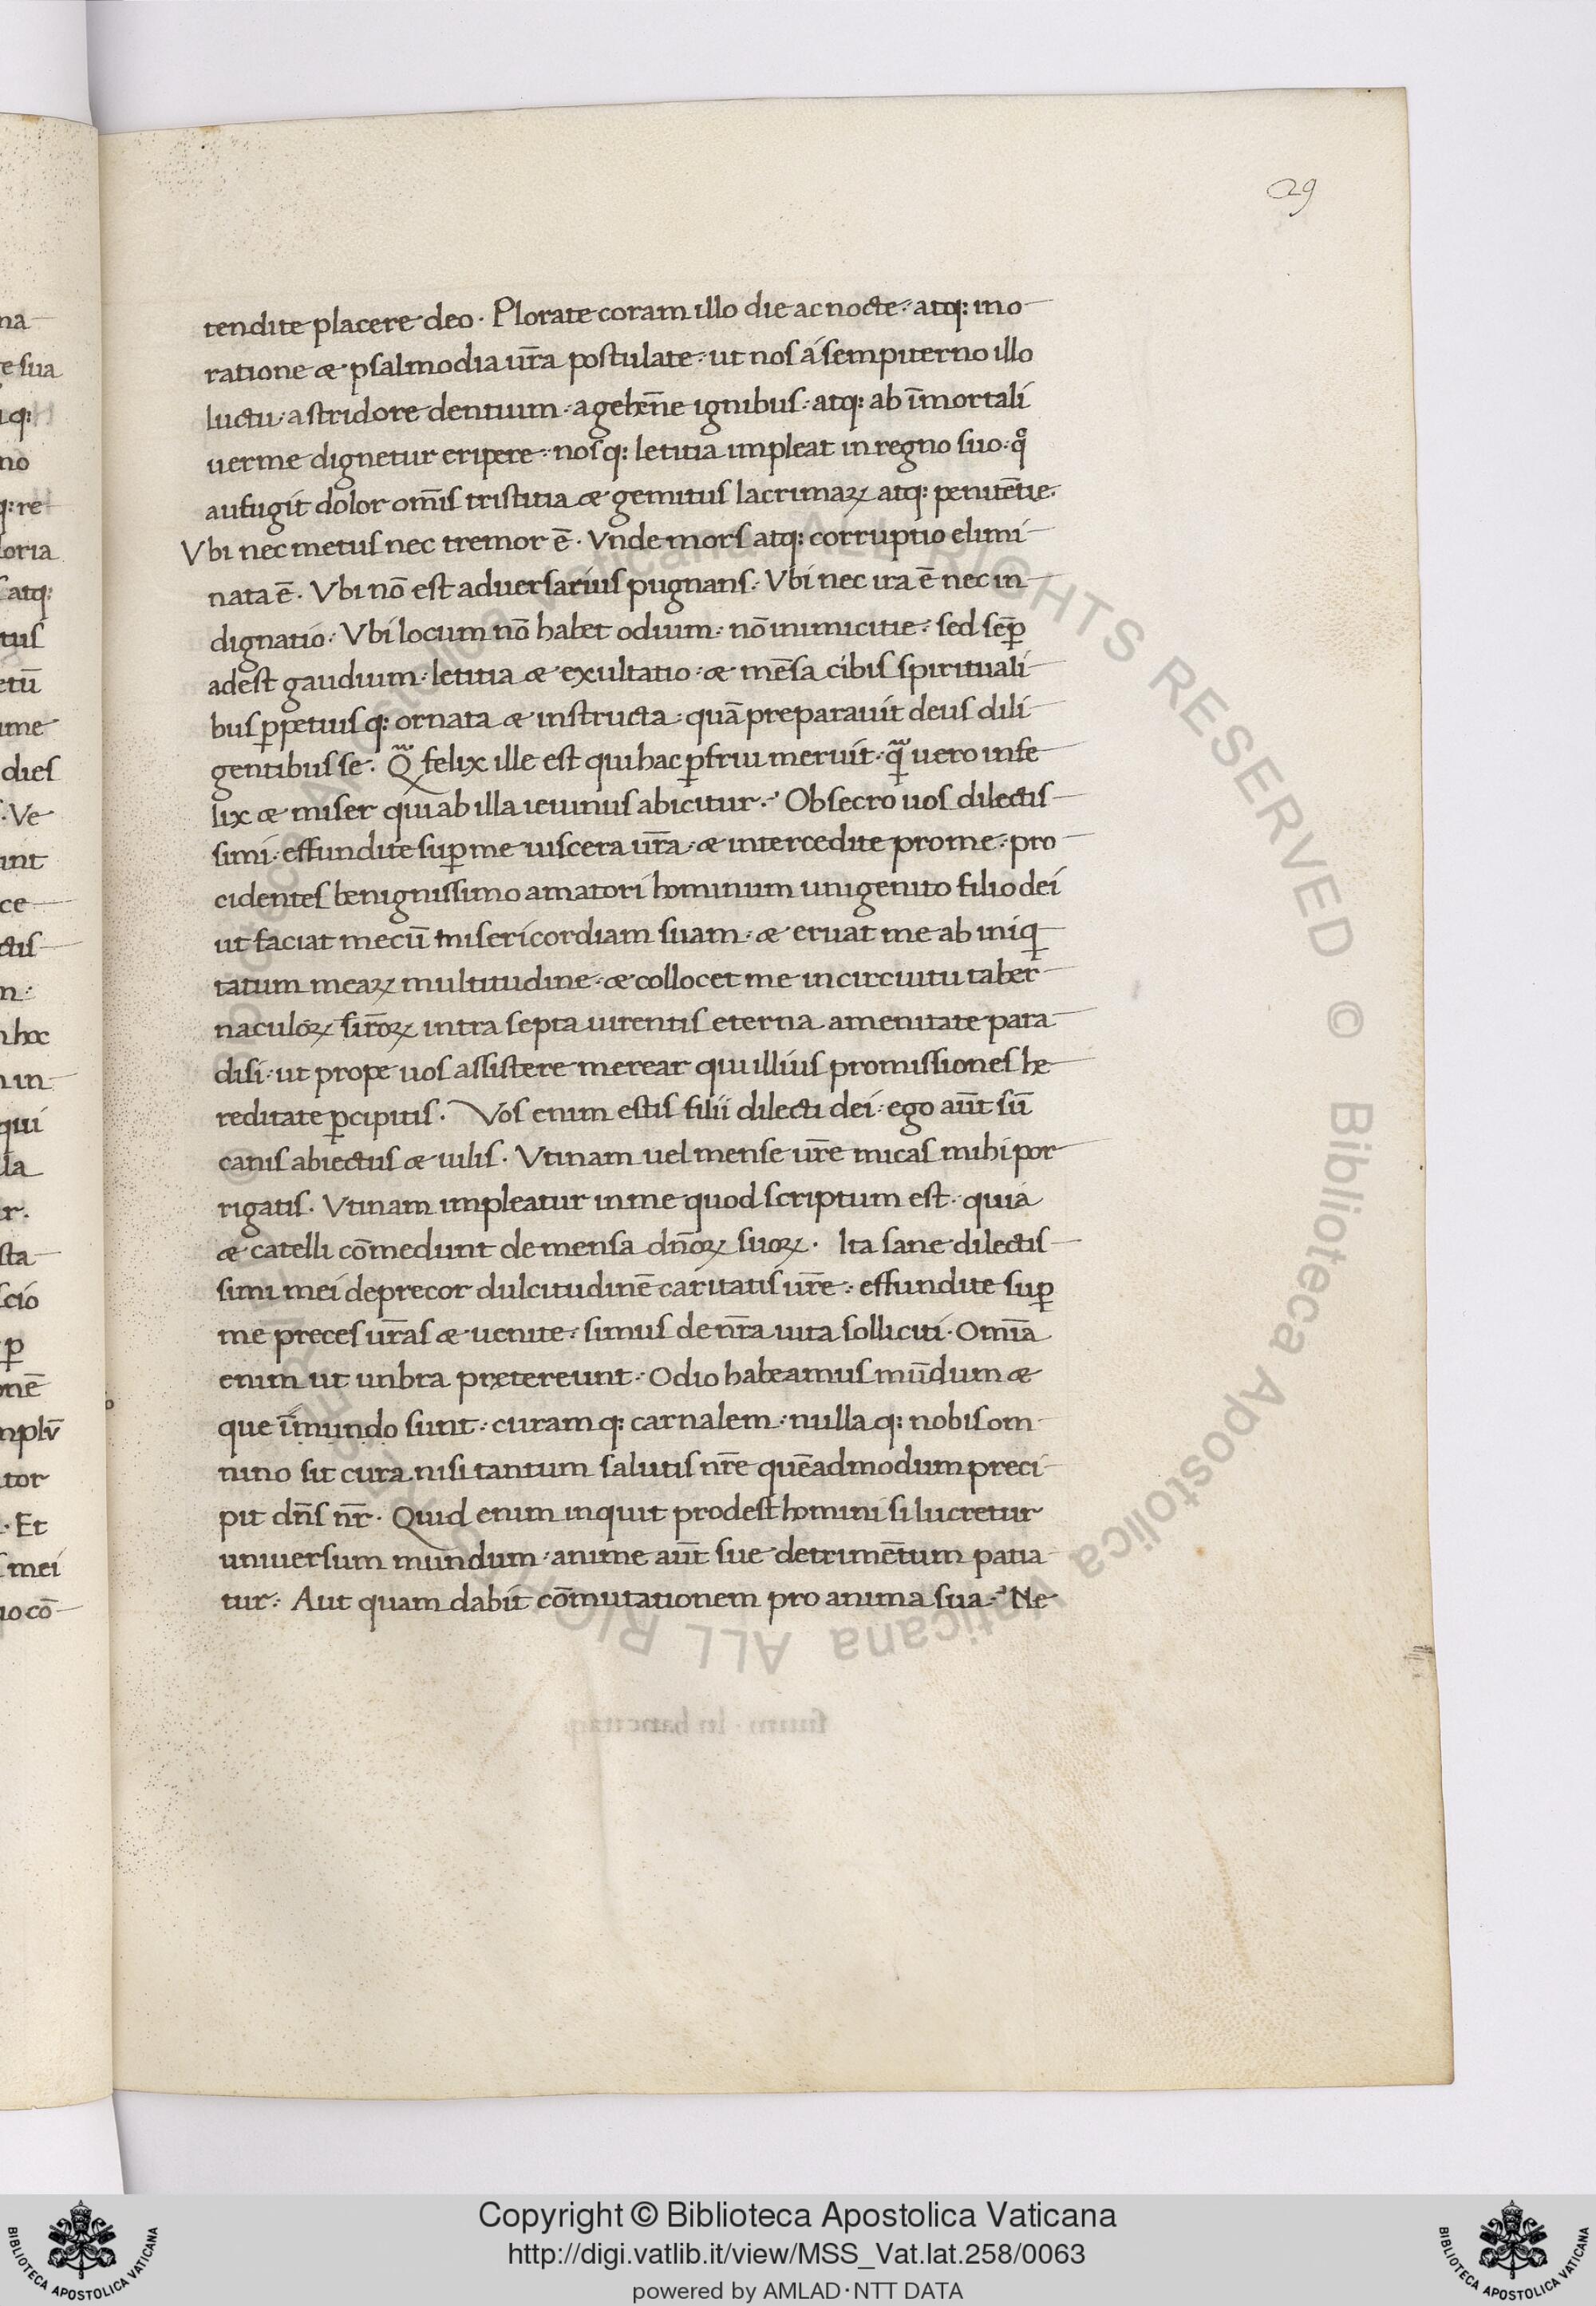 29
tendite placere deo. Plorate coram illo die ac nocte: atq: in o
ratione æ psalmodia ur̄a postulate: ut nos á sempiterno illo
luctu: a stridore dentium: a gehen̄e ignibus: atq: ab īmortali
uerme dignetur eripere: nosq: letitia impleat in regno suo: qͦ
aufugit dolor om̄is tristitia æ gemitus lacrimaꝝ atq: penitētie.
Vbi nec metus nec tremor ē. Vnde mors atq: corruptio elimi
nata ē. Vbi nō est aduersarius pugnans. Vbi nec ira ē nec in
dignatio. Vbi locum nō habet odium: nō inimicitie: sed semꝑ
adest gaudium: letitia æ exultatio: æ mēsa cibis spirituali
bus ꝑpetuisq: ornata æ instructa: quā preparauit deus dili
gentibus se. Qᷓ felix ille est qui hac ꝑfrui meruit: qᷓ uero infe
lix æ miser qui ab illa ieiunus abicitur. Obsecro uos dilectis
simi: effundite suꝑ me uiscera ur̄a: æ intercedite pro me: pro
cidentes benignissimo amatori hominum unigenito filio dei
ut faciat mecū misericordiam suam: æ eruat me ab iniq
tatum meaꝝ multitudine: æ collocet me in circuitu taber
naculoꝝ suoꝝ intra septa uirentis eterna amenitate para
disi: ut prope uos assistere merear qui illius promissiones he
reditate ꝑcipitis. Vos enim estis filii dilecti dei: ego aūt sū
canis abiectus æ uilis. Vtinam uel mense ur̄e micas mihi por
rigatis. Vtinam impleatur in me quod scriptum est: quia
æ catelli cōmedunt de mensa dn̄oꝝ suoꝝ. Ita sane dilectis
simi mei deprecor dulcitudinē caritatis ur̄e: effundite suꝑ
me preces ur̄as æ uenite: simus de nr̄a uita solliciti. Omīa
enim ut unbra pretereunt. Odio habeamus mūdum æ
que ī mundo sunt: curamq: carnalem: nullaq: nobis om
nino sit cura nisi tantum salutis nr̄e quēadmodum preci
pit dn̄s nr̄. Quid enim inquit prodest homini si lucretur
uniuersum mundum: anime aūt sue detrimētum patia
tur: Aut quam dabit cōmutationem pro anima sua? Ne
na
e sua
q:
no
q: re
oria
atq:
tus
etū
ime
dies
. Ve
int
ce
ctis
n:
hoc
in
qui
la
r.
sta
scio
ꝑ
onē
mplū
tor
. Et
mei
io cō
© Biblioteca Apostolica Vaticana ALL RIGHTS RESERVED
Copyright © Biblioteca Apostolica Vaticana
http://digi.vatlib.it/view/MSS_Vat.lat.258/0063
powered by AMLAD·NTT DATA
BIBLIOTECA APOSTOLICA VATICANA
BIBLIOTECA APOSTOLICA VATICANA